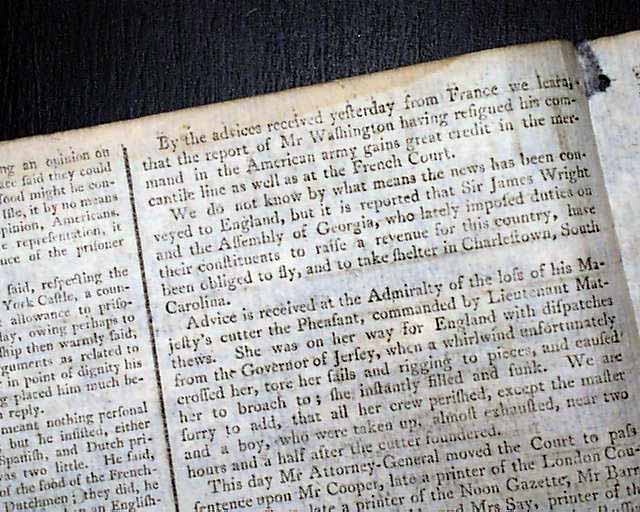 ng an opinion on
ace said they could
food might he con-
Isle, it by no means
opinion, Americans.
e representation, it
uce of the prisoner
said, respecting the
York Castle, a coun-
allowance to priso-
day, owing perhaps to
ship then warmly said,
rguments as related to
in point of dignity his
ng placed him much be-
n reply.
meant nothing personal
but he insisted, either
Spanish, and Dutch pri-
was two little. He said,
of the food of the French-
Dutchmen; they did, he
an English-
By the advices received yesterday from France we learn,
that the report of Mr Washington having resigned his com-
mand in the American army gains great credit in the mer-
cantile line as well as at the French Court.
We do not know by what means the news has been con-
veyed to England, but it is reported that Sir James Wright
and the Assembly of Georgia, who lately imposed duties on
their constituents to raise a revenue for this country, have
been obliged to fly, and to take shelter in Charlestown, South
Carolina.
Advice is received at the Admiralty of the loss of his Ma-
jesty's cutter the Pheasant, commanded by Lieutenant Mat-
thews. She was on her way for England with dispatches
from the Governor of Jersey, when a whirlwind unfortunately
crossed her, tore her sails and rigging to pieces, and caused
her to broach to; she instantly filled and sunk. We are
sorry to add, that all her crew perished, except the master
and a boy, who were taken up, almost exhausted, near two
hours and a half after the cutter foundered.
This day Mr Attorney-General moved the Court to pass
sentence upon Mr Cooper, late a printer of the London Cou-
late a printer of the Noon Gazette; Mr Bar-
and Mrs Say, printer of the